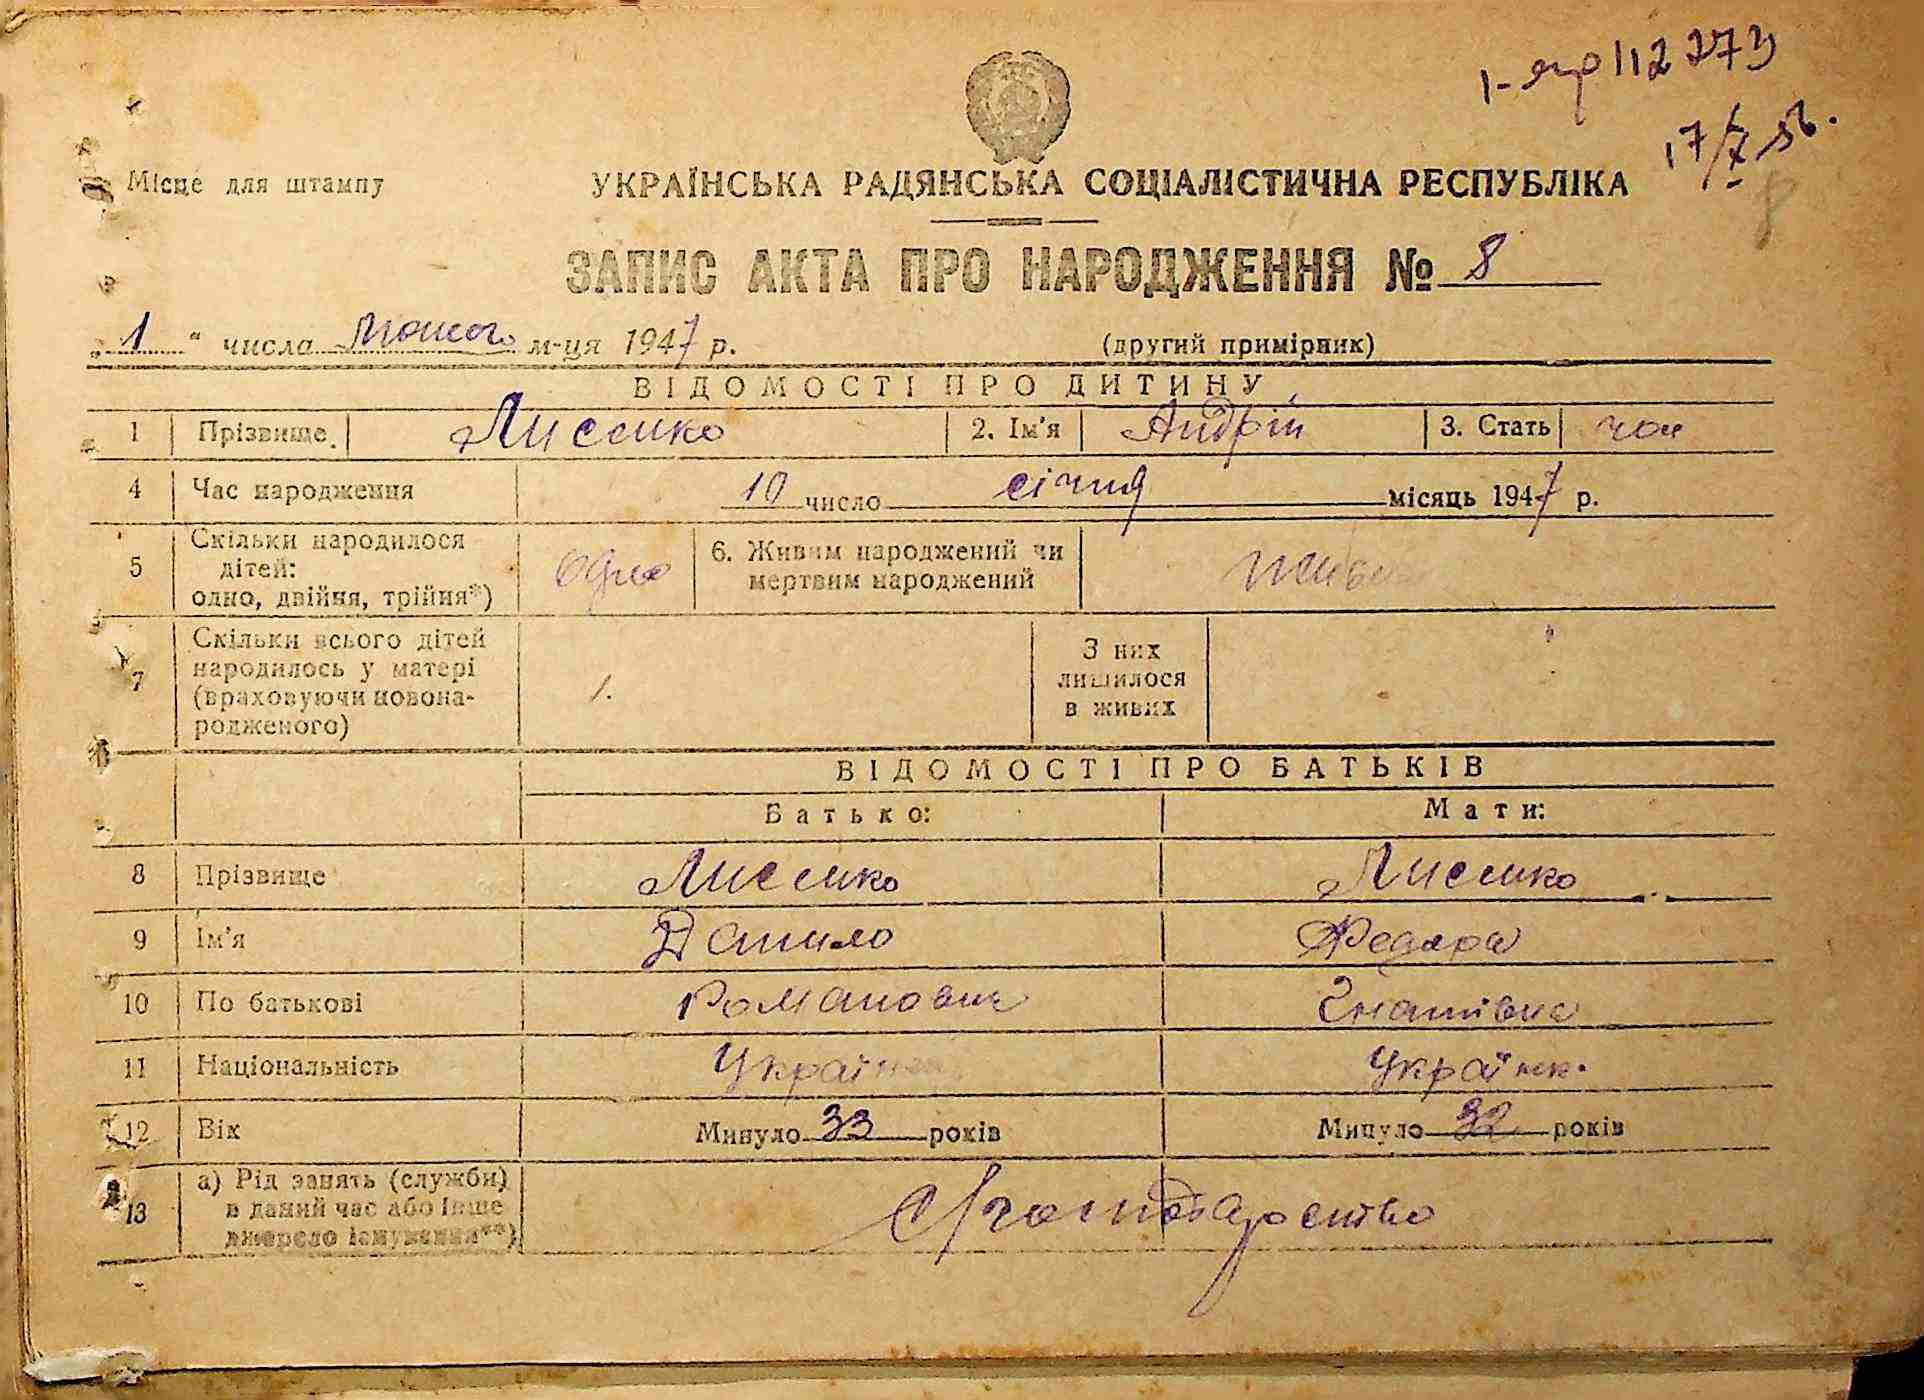 112273
17/X 56.
8
Місце для штампу
УКРАЇНСЬКА РАДЯНСЬКА СОЦІАЛІСТИЧНА РЕСПУБЛІКА
ЗАПИС АКТА ПРО НАРОДЖЕННЯ № 8
„ 1 “ числа Лютого м-ця 1947 р. (другий примірник)
ВІДОМОСТІ ПРО ДИТИНУ
1 Прізвище Лисенко 2. Ім'я Андрій 3. Стать чол
4 Час народження 10 число січня місяць 1947 р.
5 Скільки народилося дітей: одно, двійня, трійня*) Одно 6. Живим народжений чи мертвим народжений живим
7 Скільки всього дітей народилось у матері (враховуючи новонародженого) 1. З них лишилося в живих
ВІДОМОСТІ ПРО БАТЬКІВ
Батько: Мати:
8 Прізвище Лисенко Лисенко
9 Ім'я Данило Федора
10 По батькові Романович Гнатівна
11 Національність Українец Українк.
12 Вік Минуло 33 років Минуло 32 років
13 а) Рід занять (служби) в даний час або інше джерело існування**) С/господарство